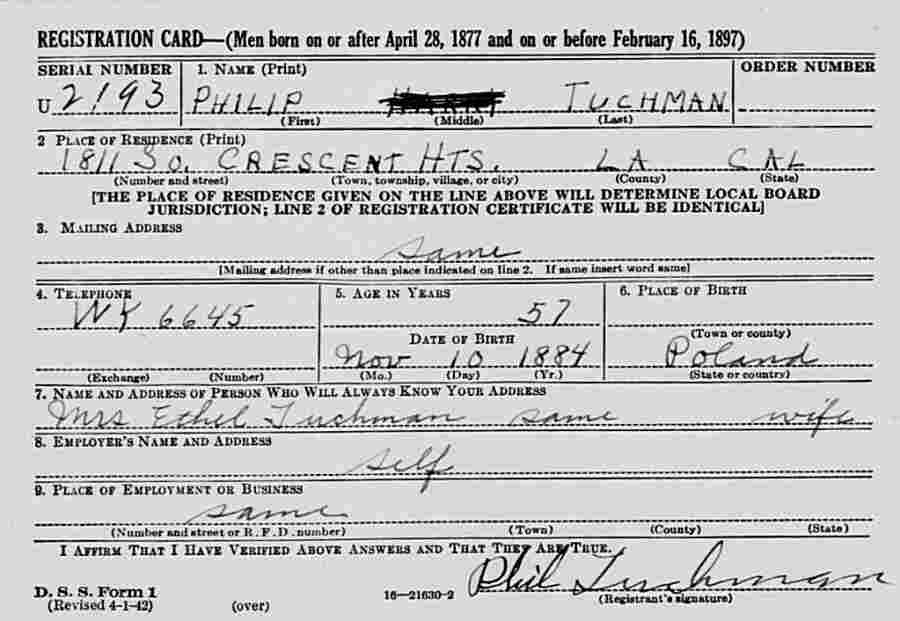 REGISTRATION CARD—(Men born on or after April 28, 1877 and on or before February 16, 1897)
SERIAL NUMBER 1. NAME (Print) ORDER NUMBER
U 2193 PHILIP TUCHMAN
(First) (Middle) (Last)
2 PLACE OF RESIDENCE (Print)
1811 SO. CRESCENT HTS. LA CAL
(Number and street) (Town, township, village, or city) (County) (State)
[THE PLACE OF RESIDENCE GIVEN ON THE LINE ABOVE WILL DETERMINE LOCAL BOARD
JURISDICTION; LINE 2 OF REGISTRATION CERTIFICATE WILL BE IDENTICAL]
3. MAILING ADDRESS
same
[Mailing address if other than place indicated on line 2. If same insert word same]
4. TELEPHONE 5. AGE IN YEARS 6. PLACE OF BIRTH
WY 6645 57
(Town or county)
DATE OF BIRTH
Nov 10 1884 Poland
(Exchange) (Number) (Mo.) (Day) (Yr.) (State or country)
7. NAME AND ADDRESS OF PERSON WHO WILL ALWAYS KNOW YOUR ADDRESS
Mrs Ethel Tuchman same wife
8. EMPLOYER'S NAME AND ADDRESS
self
9. PLACE OF EMPLOYMENT OR BUSINESS
same
(Number and street or R. F. D. number) (Town) (County) (State)
I AFFIRM THAT I HAVE VERIFIED ABOVE ANSWERS AND THAT THEY ARE TRUE.
Phil Tuchman
D. S. S. Form 1
(Revised 4-1-42) (over) 16—21630-2 (Registrant's signature)